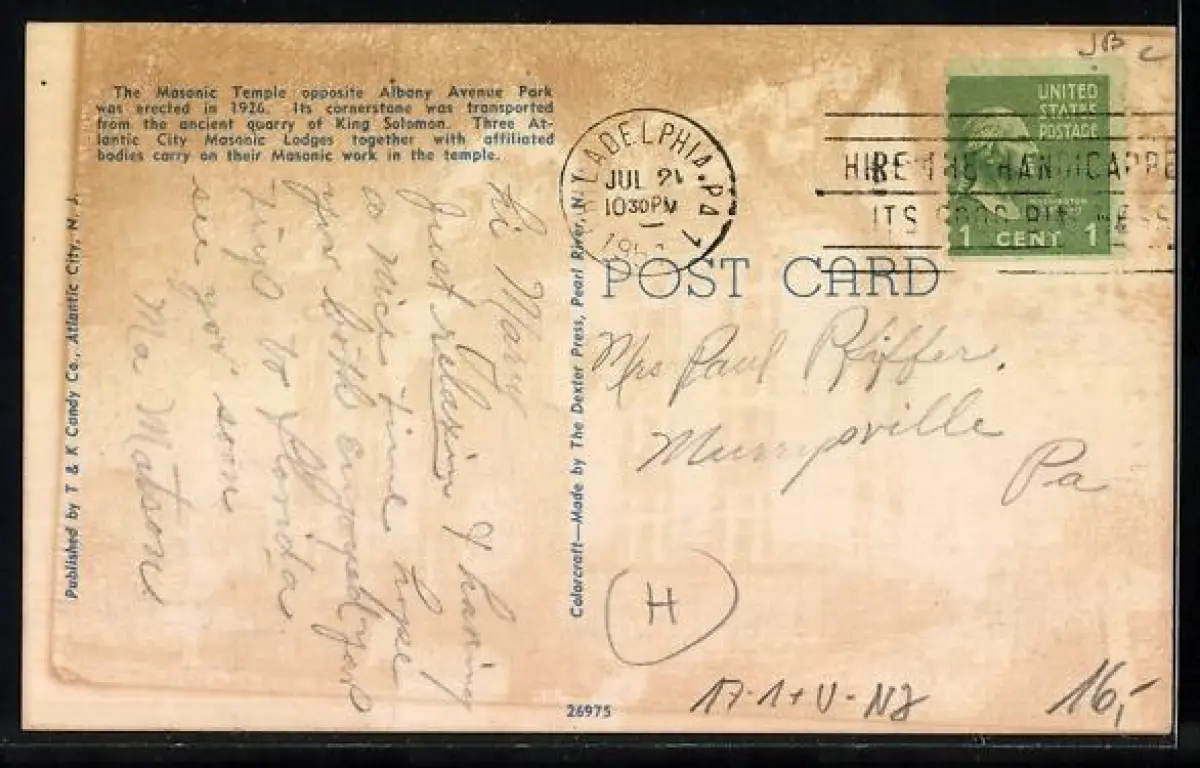 JB C
The Masonic Temple opposite Albany Avenue Park
was erected in 1926. Its cornerstone was transported
from the ancient quarry of King Solomon. Three At-
lantic City Masonic Lodges together with affiliated
bodies carry on their Masonic work in the temple.
Published by T & K Candy Co., Atlantic City, N. J.
Hi Mary
Just relaxin & having
a nice time hope
you both enjoyed
trip to Florida.
see you soon
Ma Matson
Colorcraft—Made by The Dexter Press, Pearl River, N.Y.
26975
PHILADELPHIA, PA
JUL 21
1030PM
1
UNITED
STATES
POSTAGE
1 CENT 1
HIRE THE HANDICAPPE
ITS GOOD BUSINESS
POST CARD
Mrs Paul Pfiffer.
Murrysville
Pa
H
17-1+V-NJ
16,-